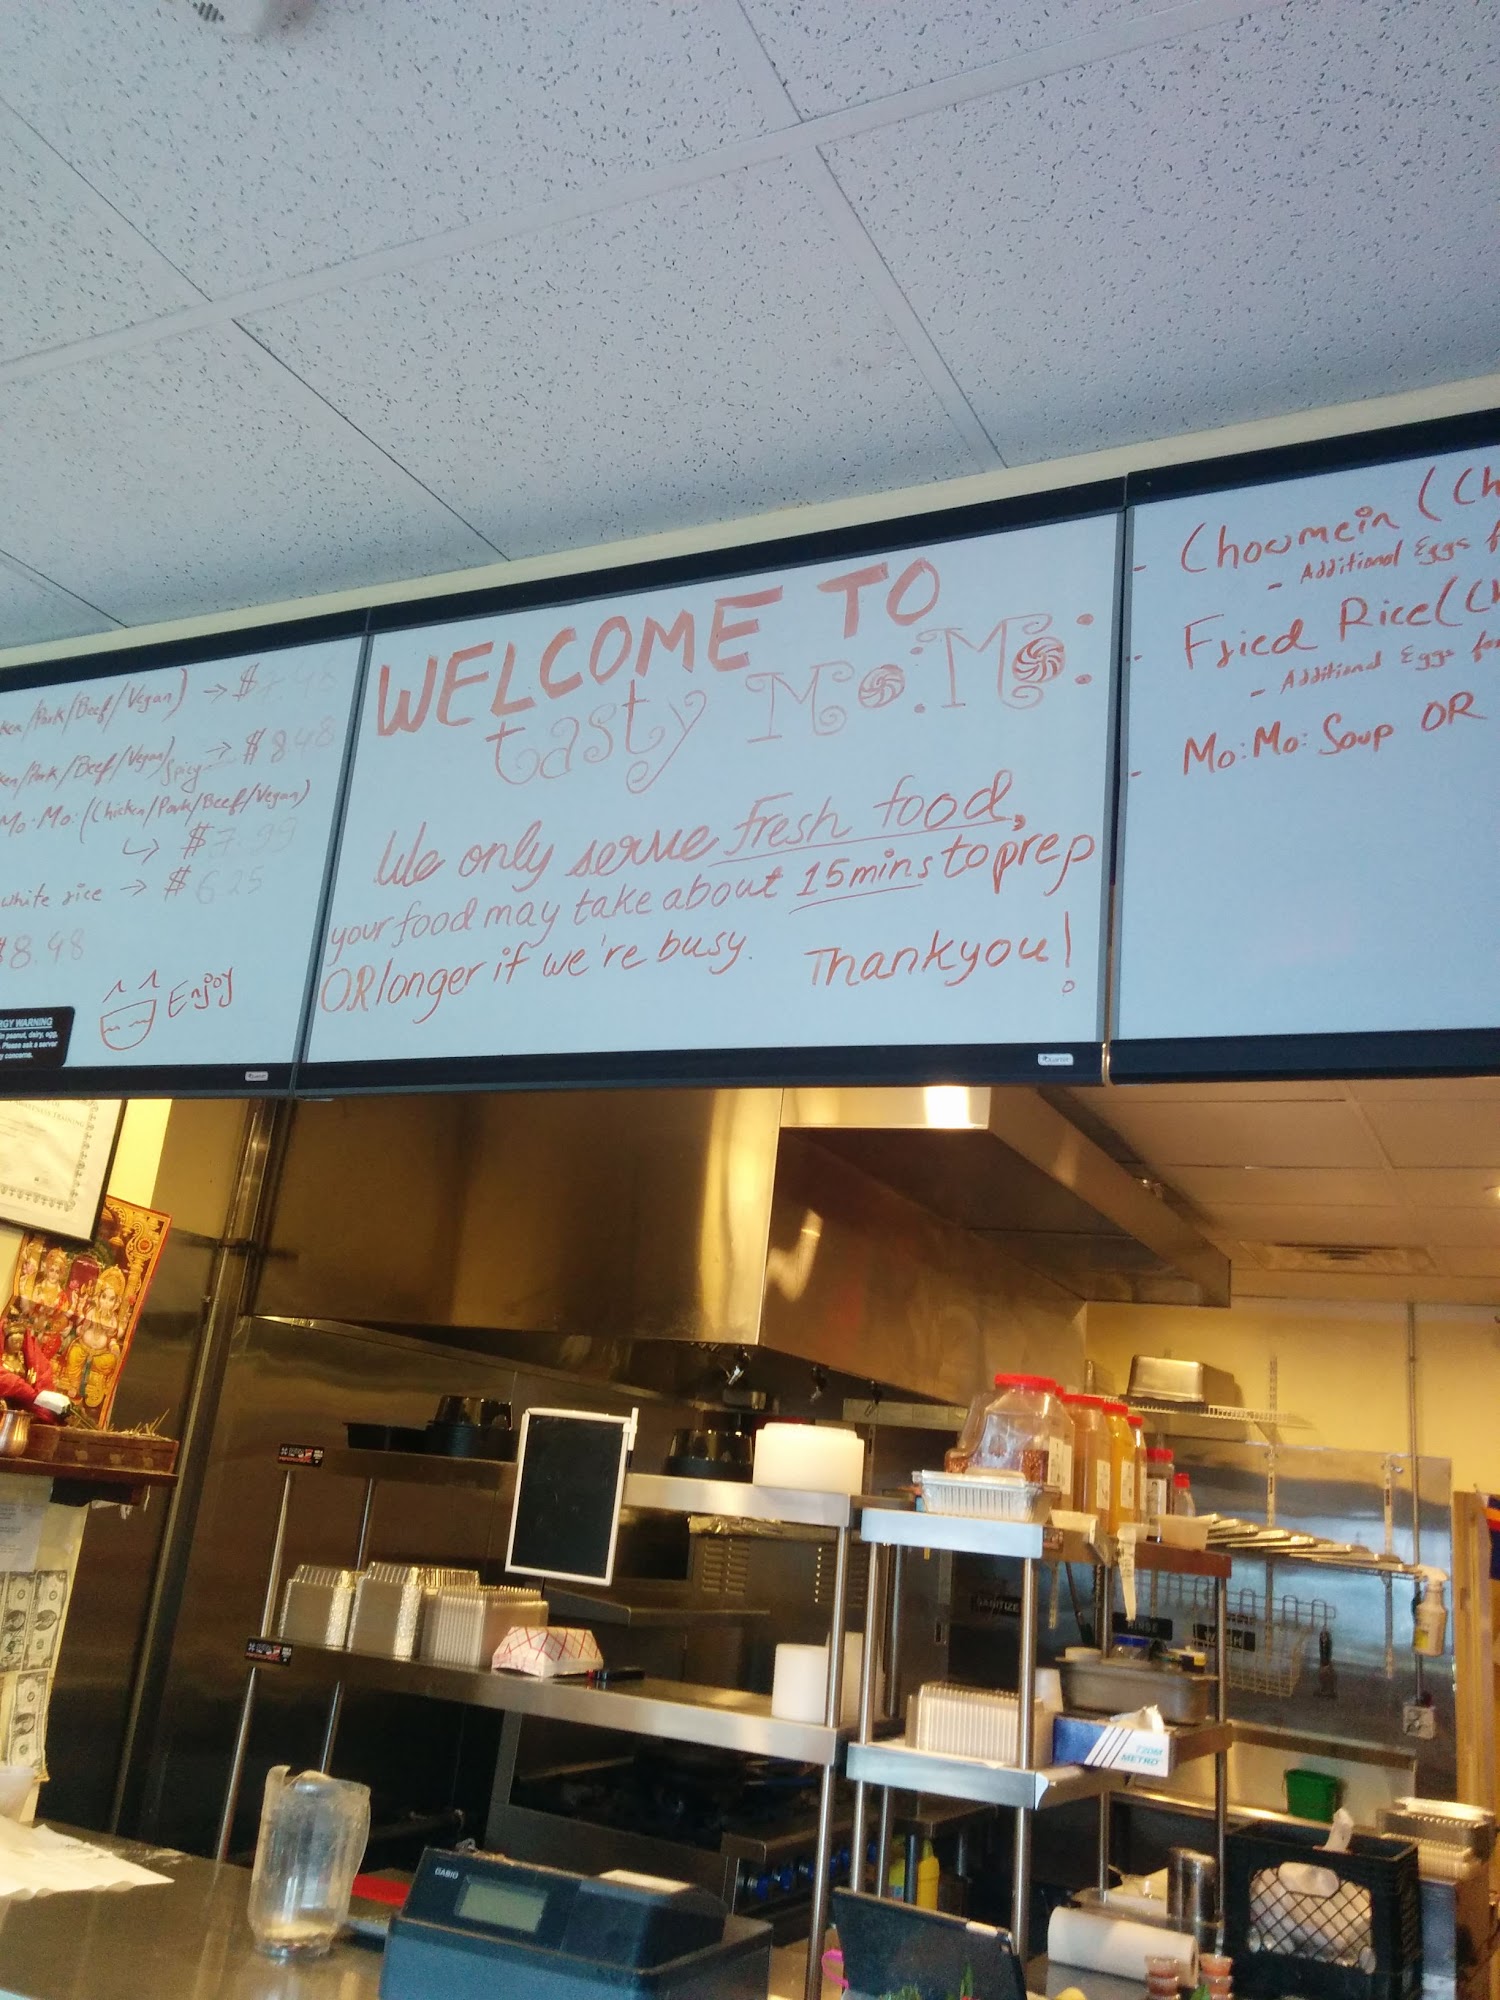 /Pork/Beef/Vegan) → $
/Pork/Beef/Vegan) → $8.48
Spicy
Mo:Mo: (Chicken/Pork/Beef/Vegan)
↳ $7.99
white rice → $6.25
$8.48
Enjoy
RGY WARNING
in peanut, dairy, egg,
Please ask a server
y concerns.
WELCOME TO
tasty Mo:Mo:
We only serve fresh food,
your food may take about 15mins to prep
OR longer if we're busy. Thankyou!
- Chowmein (Ch
- Additional Eggs f
- Fried Rice (Ch
- Additional Eggs for
- Mo:Mo: Soup OR
SANITIZE
RINSE
WASH
METRO
CASIO